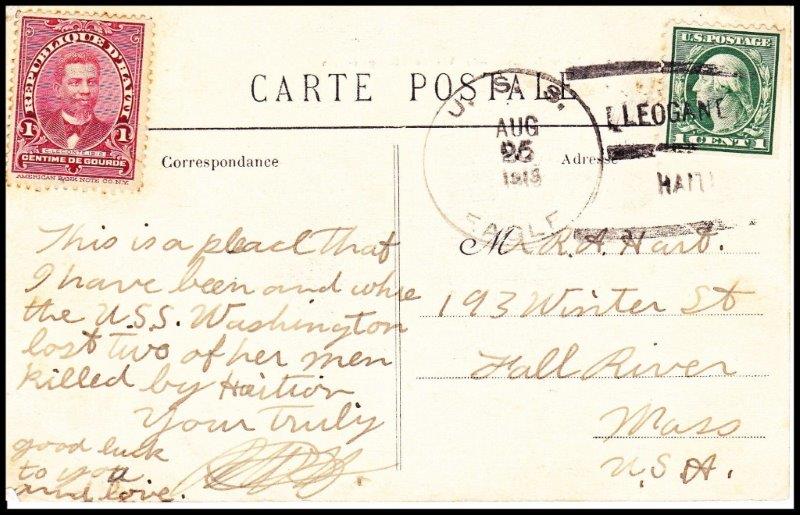 REPUBLIQUE D'HAITI
1 1
CENTIME DE GOURDE
C. LECONTE 1912
AMERICAN BANK NOTE CO. N.Y.
CARTE POSTALE
U. S. S.
AUG
25
EAGLE
LLEOGANE
HAITI
U.S. POSTAGE
1 CENT 1
Correspondance
Adresse
This is a pleact that
I have been and whre
the U.S.S. Washington
lost two of her men
killed by Haition
Your Truly
good luck
to you
and love.
Mr. R.A. Hart.
193 Winter St
Fall River
Mass
U.S.A.